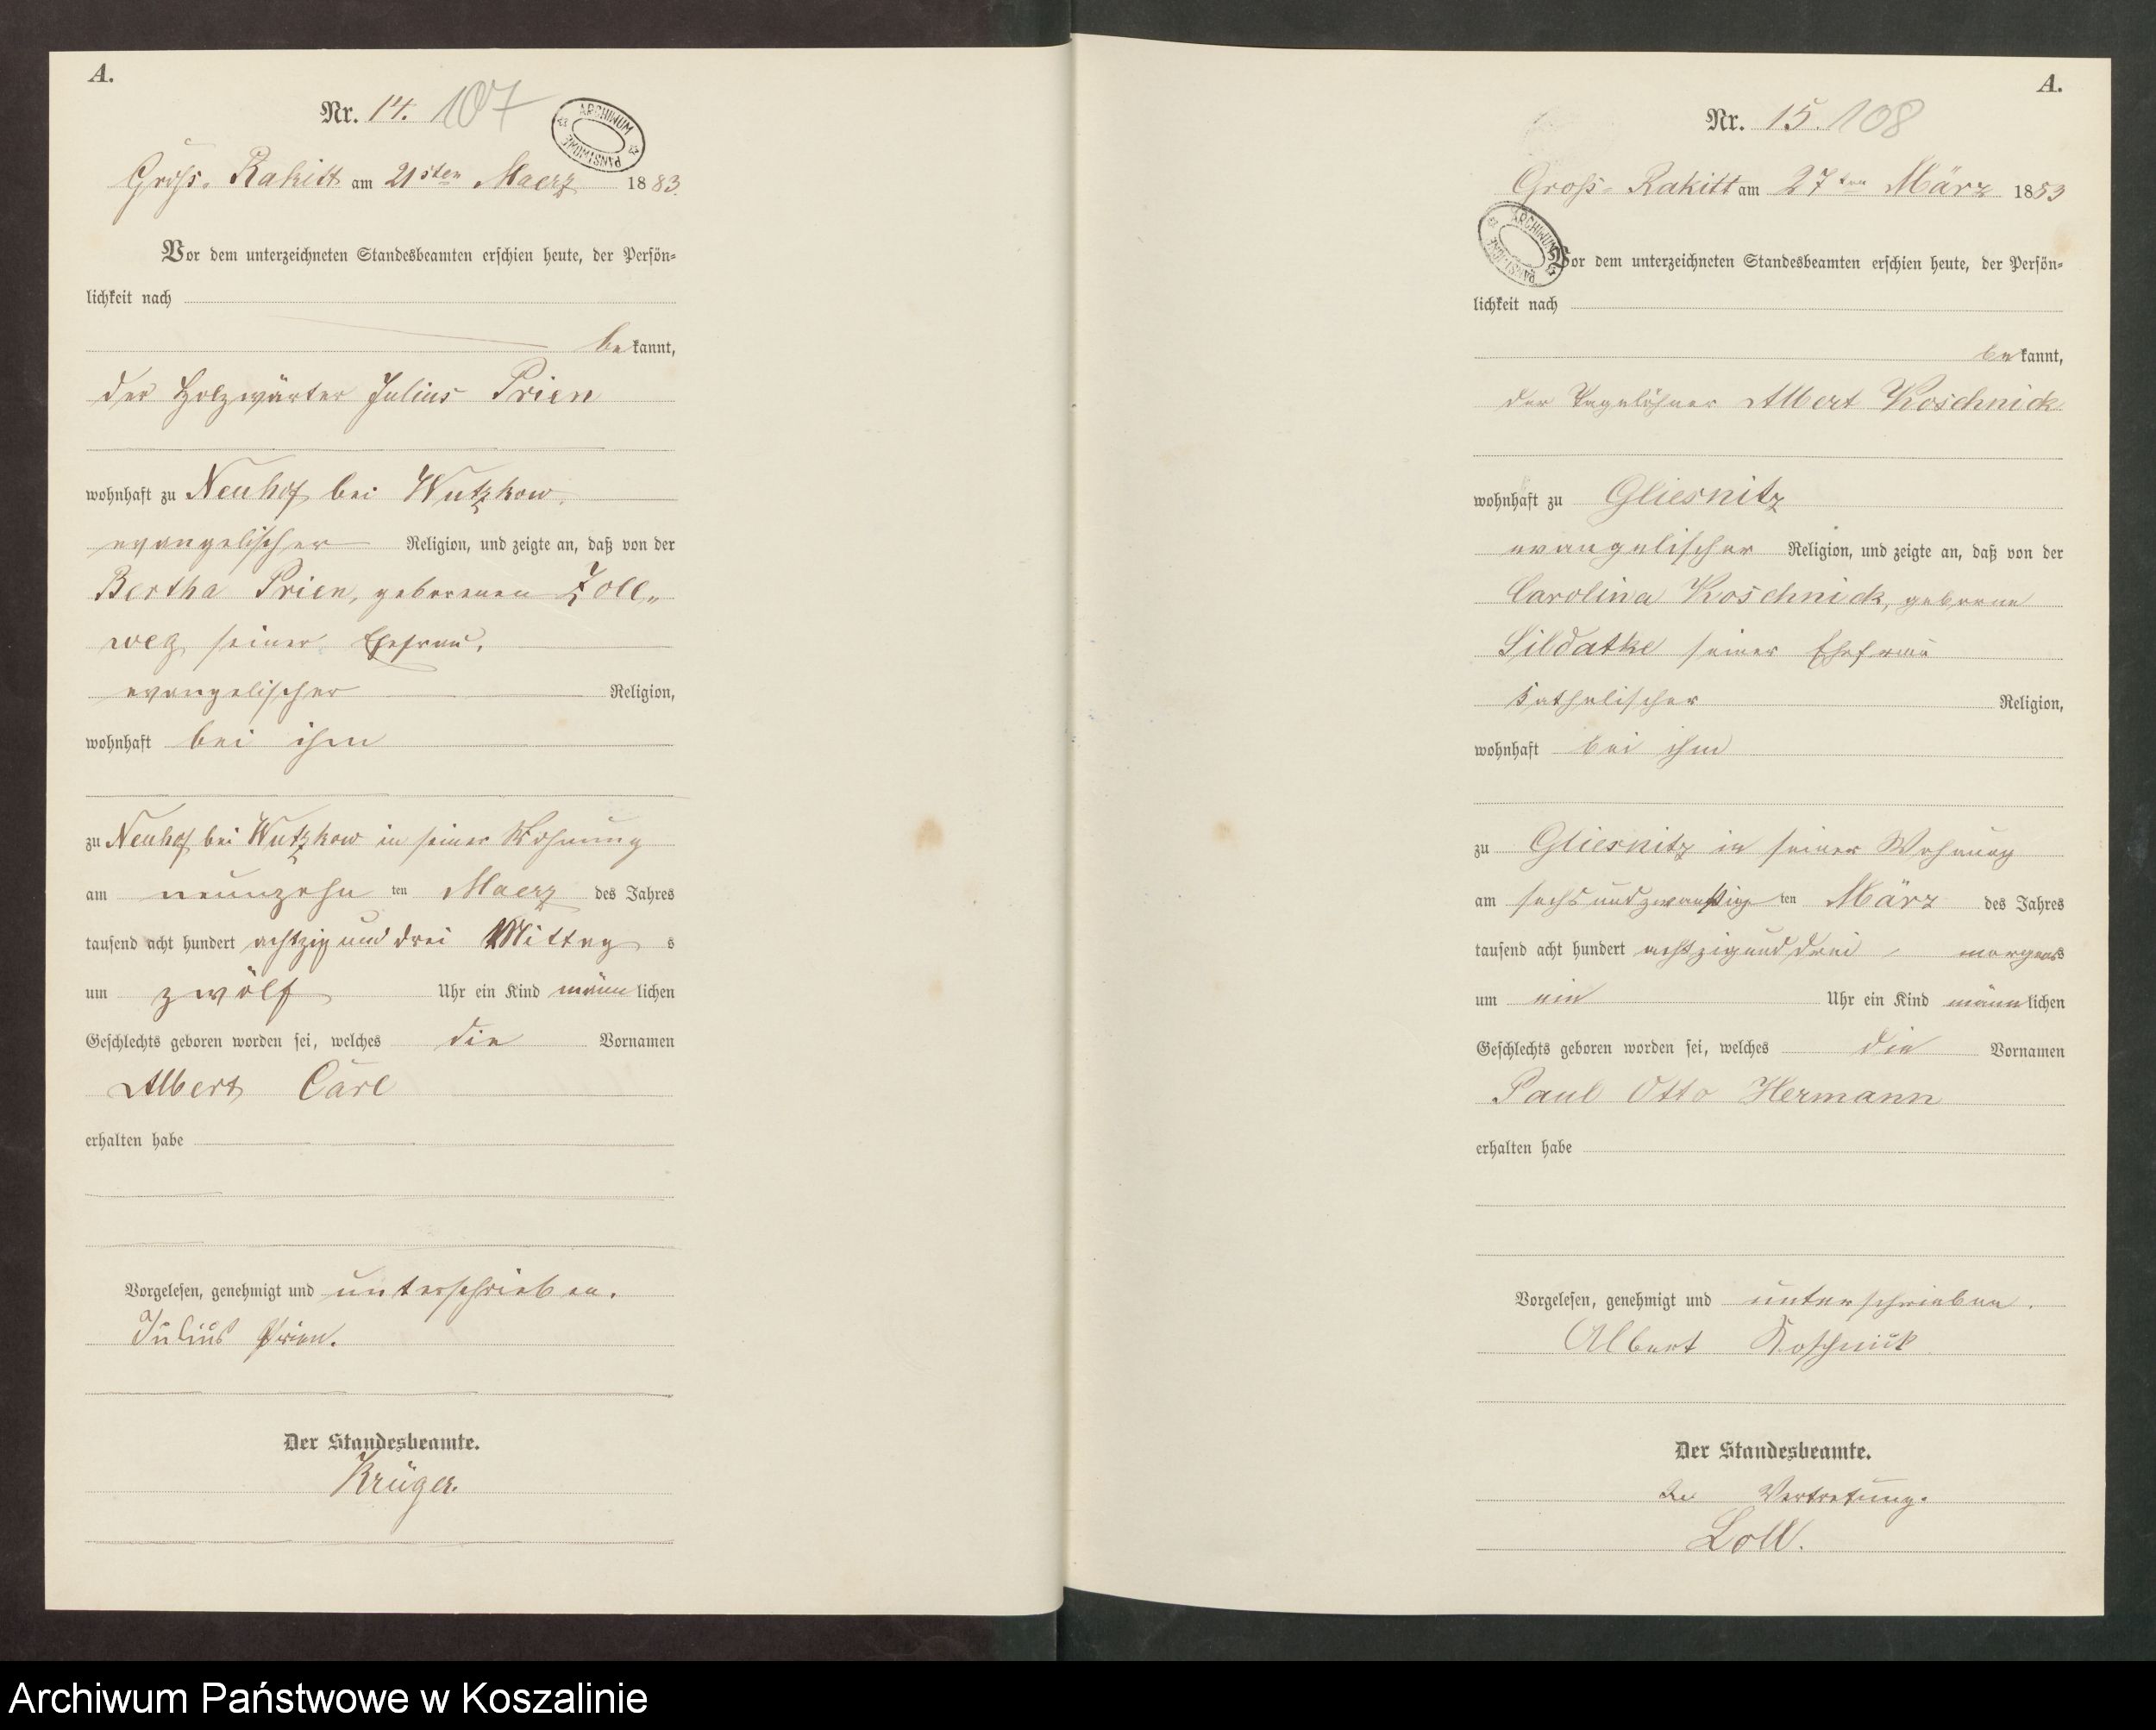 A.
Nr. 14. 107
ARCHIWUM PAŃSTWOWE
Gross-Rakitt am 21sten Maerz 1883.
Vor dem unterzeichneten Standesbeamten erschien heute, der Persön-
lichkeit nach
bekannt,
der Holzwärter Julius Prien
wohnhaft zu Neuhof bei Wutzkow,
evangelischer Religion, und zeigte an, daß von der
Bertha Prien, geborenen Zoll-
weg seiner Ehefrau,
evangelischer Religion,
wohnhaft bei ihm
zu Neuhof bei Wutzkow in seiner Wohnung
am neunzehn ten Maerz des Jahres
tausend acht hundert achtzig und drei Mittag s
um zwölf Uhr ein Kind männlichen
Geschlechts geboren worden sei, welches die Vornamen
Albert Carl
erhalten habe
Vorgelesen, genehmigt und unterschrieben.
Julius Prien.
Der Standesbeamte.
Krüger.
A.
Nr. 15. 108
Gross-Rakitt am 27ten März 1883
ARCHIWUM PAŃSTWOWE
Vor dem unterzeichneten Standesbeamten erschien heute, der Persön-
lichkeit nach
bekannt,
der Tagelöhner Albert Koschnick
wohnhaft zu Gliesnitz
evangelischer Religion, und zeigte an, daß von der
Carolina Koschnick, geborne
Sildatke seiner Ehefrau
katholischer Religion,
wohnhaft bei ihm
zu Gliesnitz in seiner Wohnung
am sechsundzwanzigsten März des Jahres
tausend acht hundert achtzig und drei morgens
um ein Uhr ein Kind männlichen
Geschlechts geboren worden sei, welches die Vornamen
Paul Otto Hermann
erhalten habe
Vorgelesen, genehmigt und unterschrieben.
Albert Koschnick
Der Standesbeamte.
In Vertretung.
Loll.
Archiwum Państwowe w Koszalinie